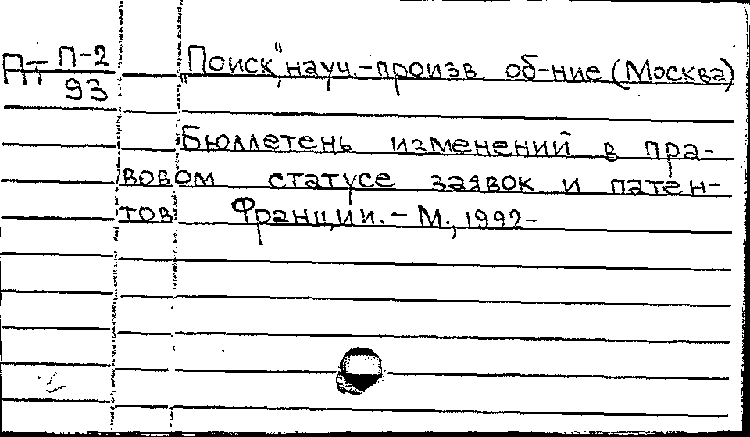 Пт П-2/93
"Поиск", науч.-произв. об-ние (Москва)
Бюллетень изменений в пра-
вовом статусе заявок и патен-
тов Франции. - М., 1992-